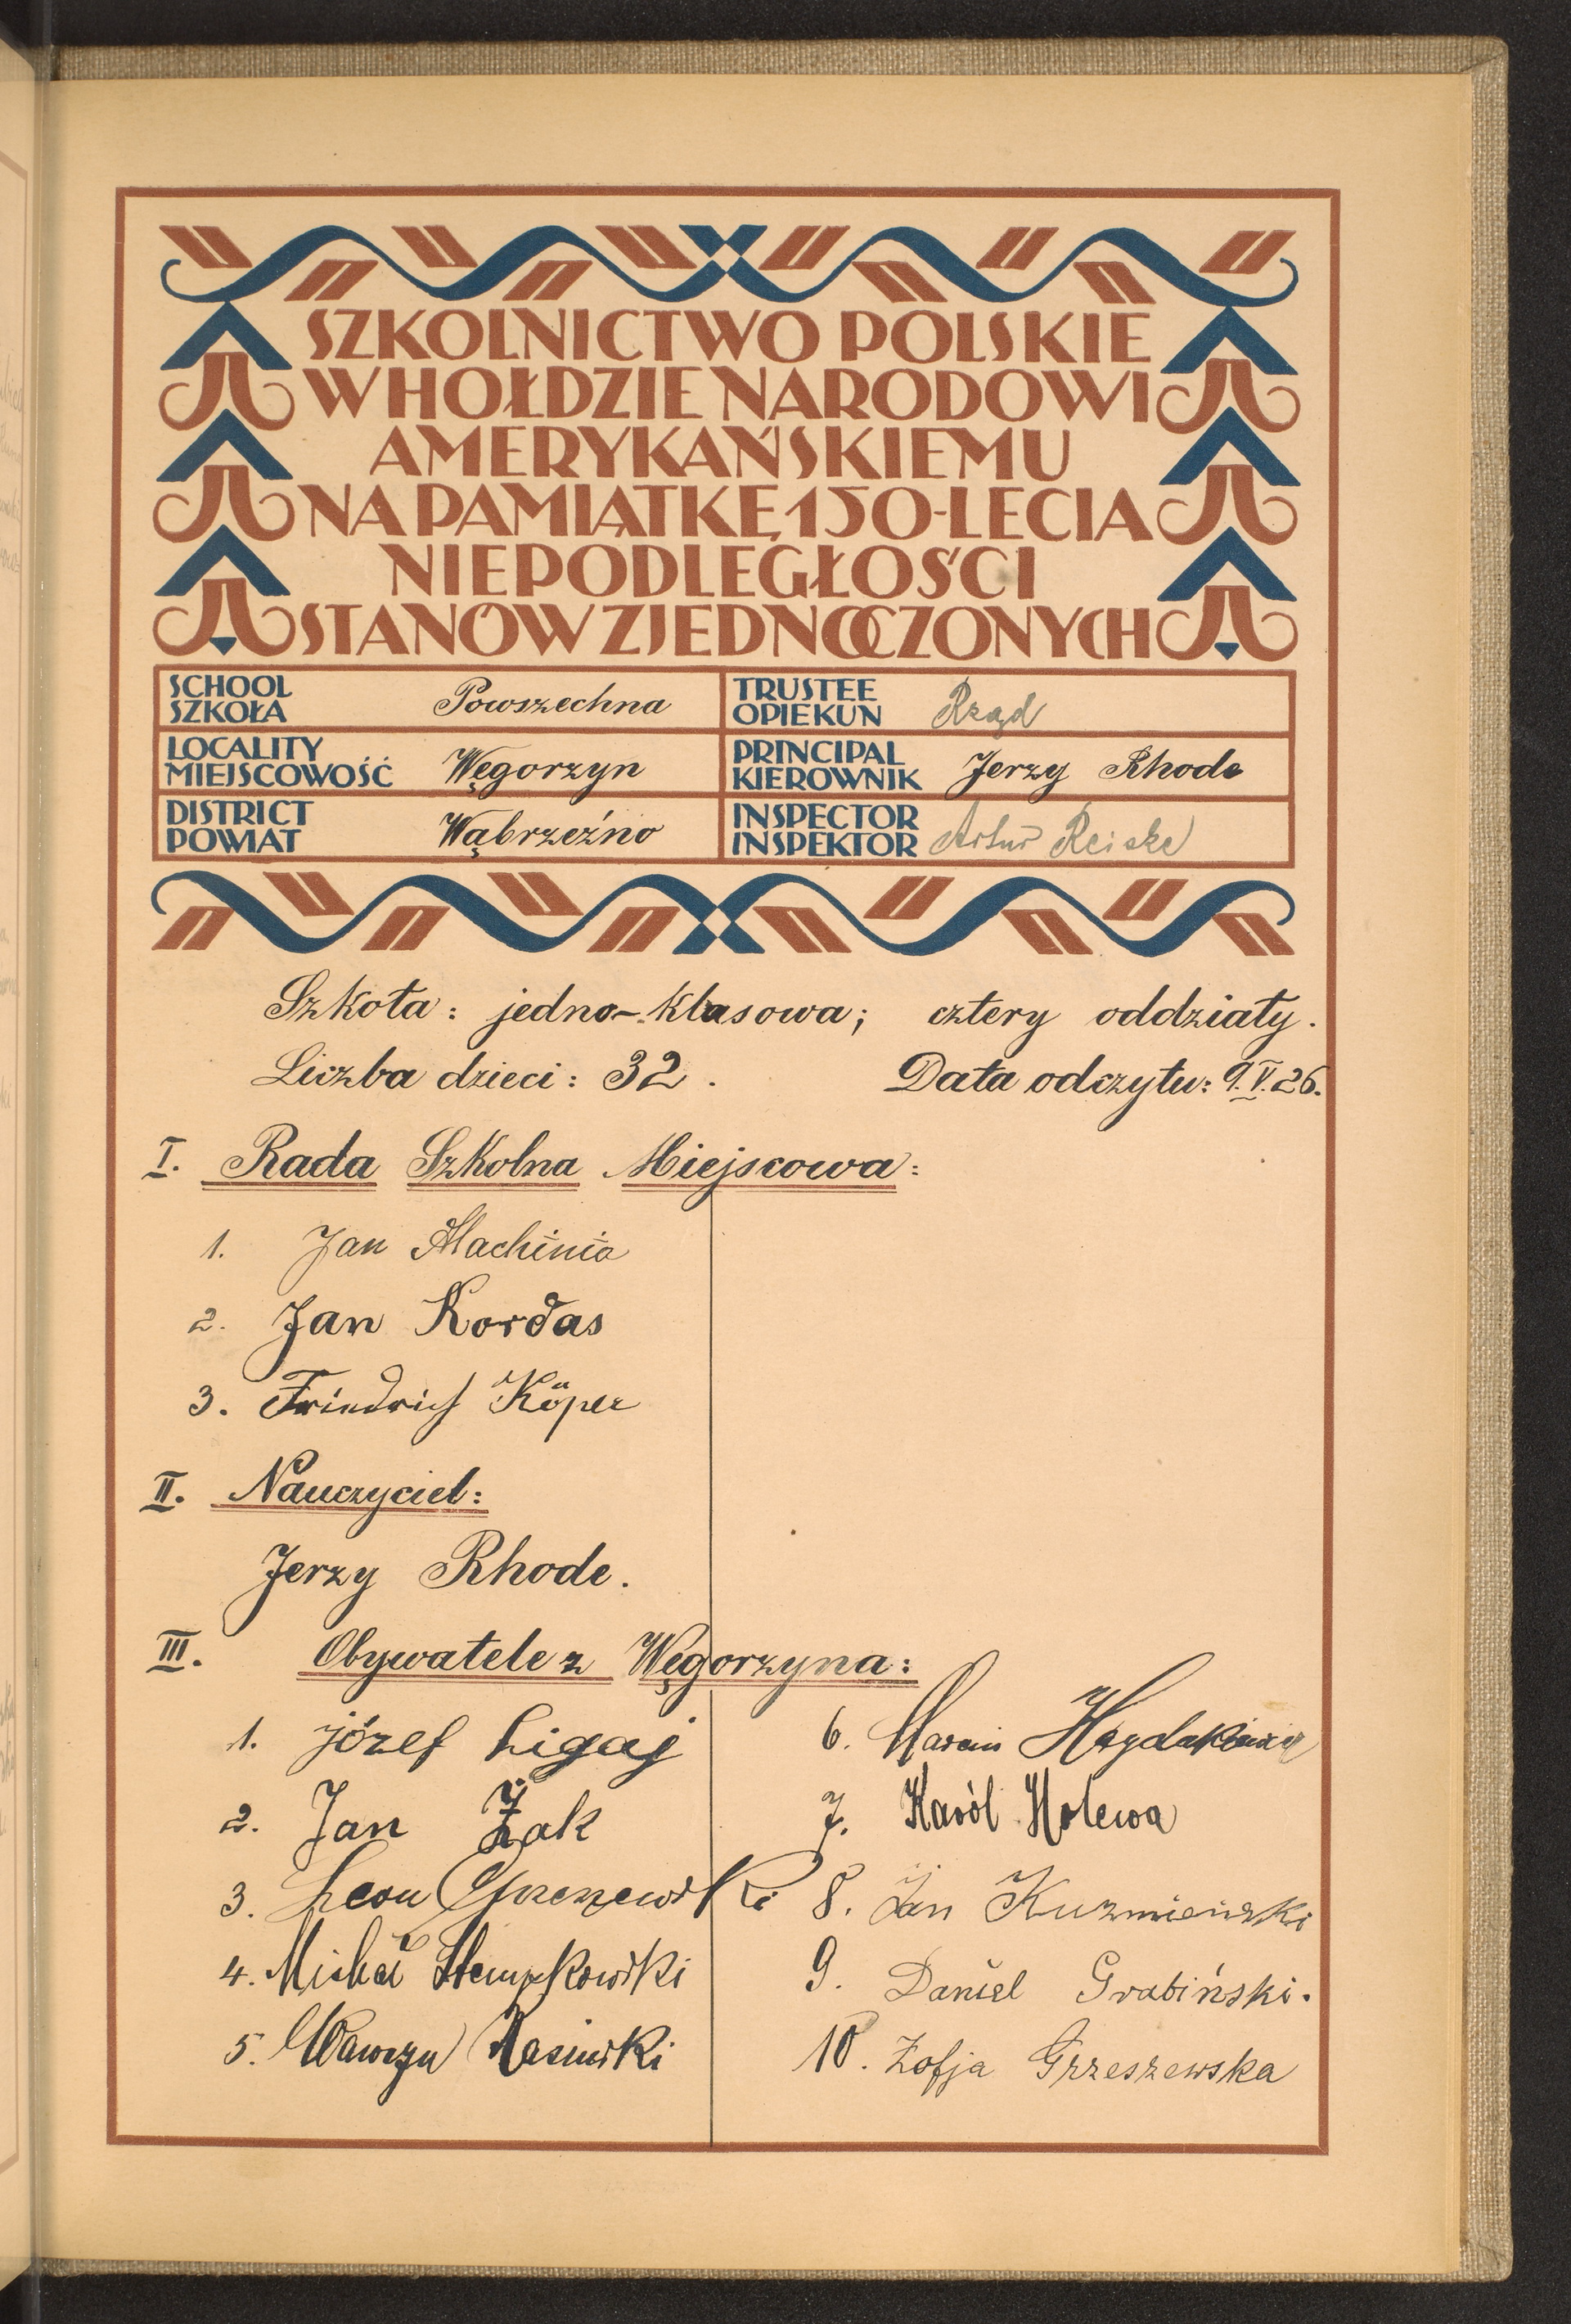 SZKOLNICTWO POLSKIE
W HOŁDZIE NARODOWI
AMERYKAŃSKIEMU
NA PAMIĄTKĘ 150-LECIA
NIEPODLEGŁOŚCI
STANÓW ZJEDNOCZONYCH
SCHOOL
SZKOŁA Powszechna
TRUSTEE
OPIEKUN Rząd
LOCALITY
MIEJSCOWOŚĆ Węgorzyn
PRINCIPAL
KIEROWNIK Jerzy Rhode
DISTRICT
POWIAT Wąbrzeźno
INSPECTOR
INSPEKTOR Artur Reiske
Szkoła: jedno-klasowa; cztery oddziały.
Liczba dzieci: 32. Data odczytu: 9.V.26.
I. Rada Szkolna Miejscowa:
1. Jan Machinia
2. Jan Kordas
3. Friedrich Köper
II. Nauczyciel:
Jerzy Rhode.
III. Obywatele z Węgorzyna:
1. józef Ligaj
2. Jan Żak
3. Leon
4. Michał Stempkowski
5. Wawrzyn
6. Marcin
7. Karól Holewa
8. Jan Kuzmieński
9. Daniel Grabiński.
10. Zofja Grzeszewska